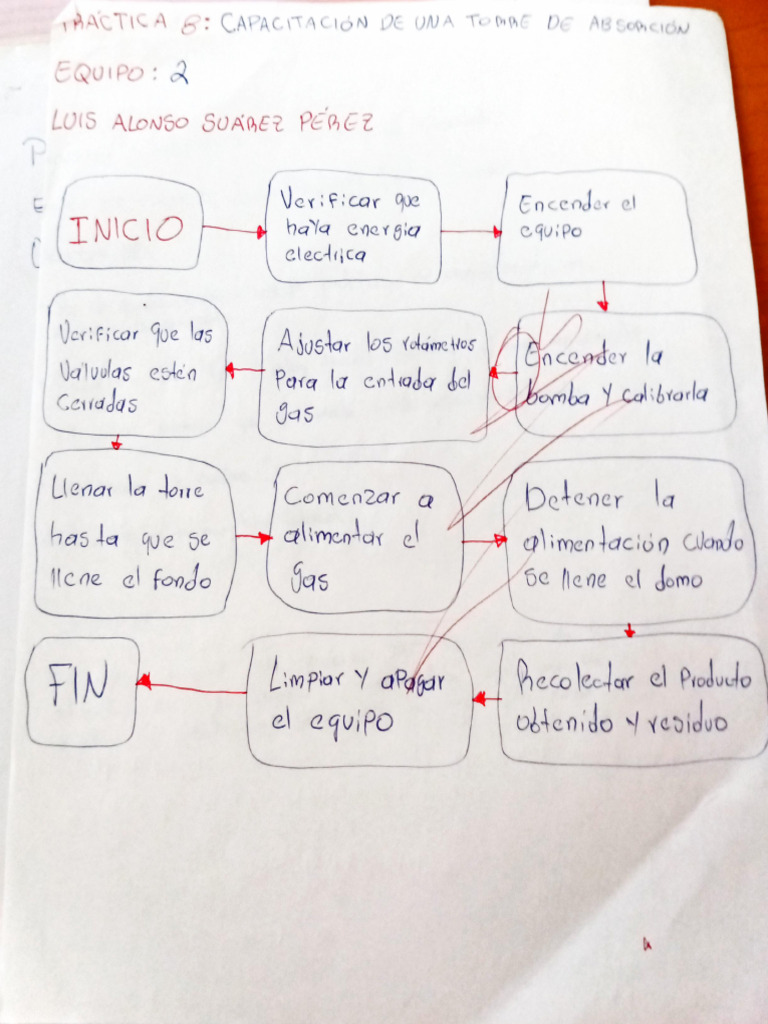 PRÁCTICA 8: CAPACITACIÓN DE UNA TORRE DE ABSORCIÓN
EQUIPO: 2
LUIS ALONSO SUÁREZ PÉREZ
INICIO
Verificar que
haya energia
electrica
Encender el
equipo
Encender la
bomba y calibrarla
Ajustar los rotámetros
Para la entrada del
gas
Verificar que las
Válvulas estén
Cerradas
Llenar la torre
hasta que se
llene el fondo
Comenzar a
alimentar el
gas
Detener la
alimentación cuando
se llene el domo
Recolectar el Producto
obtenido y residuo
Limpiar y apagar
el equipo
FIN